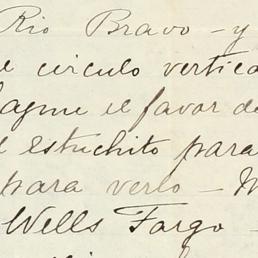 Rio Bravo - y
e circulo vertica
agme el favor de
l estuchito para
para verlo - M
Wells Fargo -